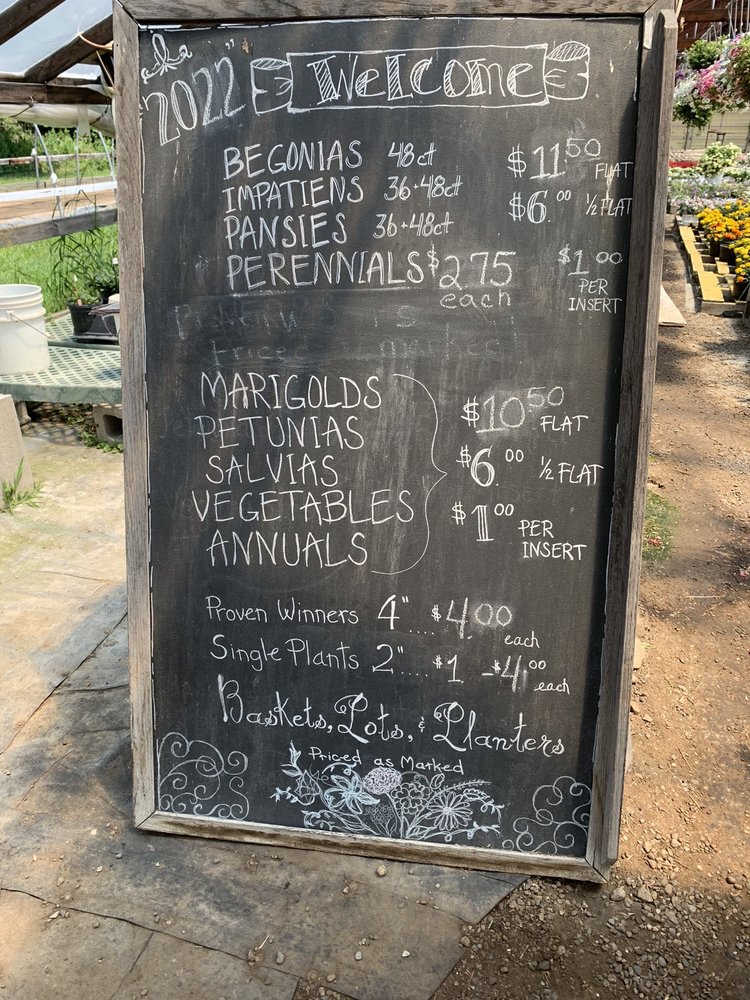 "2022"
Welcome
BEGONIAS 48ct $11.50 FLAT
IMPATIENS 36+48ct $6.00 1/2 FLAT
PANSIES 36+48ct
PERENNIALS $2.75 each $1.00 PER INSERT
MARIGOLDS $10.50 FLAT
PETUNIAS
SALVIAS $6.00 1/2 FLAT
VEGETABLES $1.00 PER INSERT
ANNUALS
Proven Winners 4".... $4.00 each
Single Plants 2".... $1 - $4.00 each
Baskets, Pots, & Planters
Priced as Marked